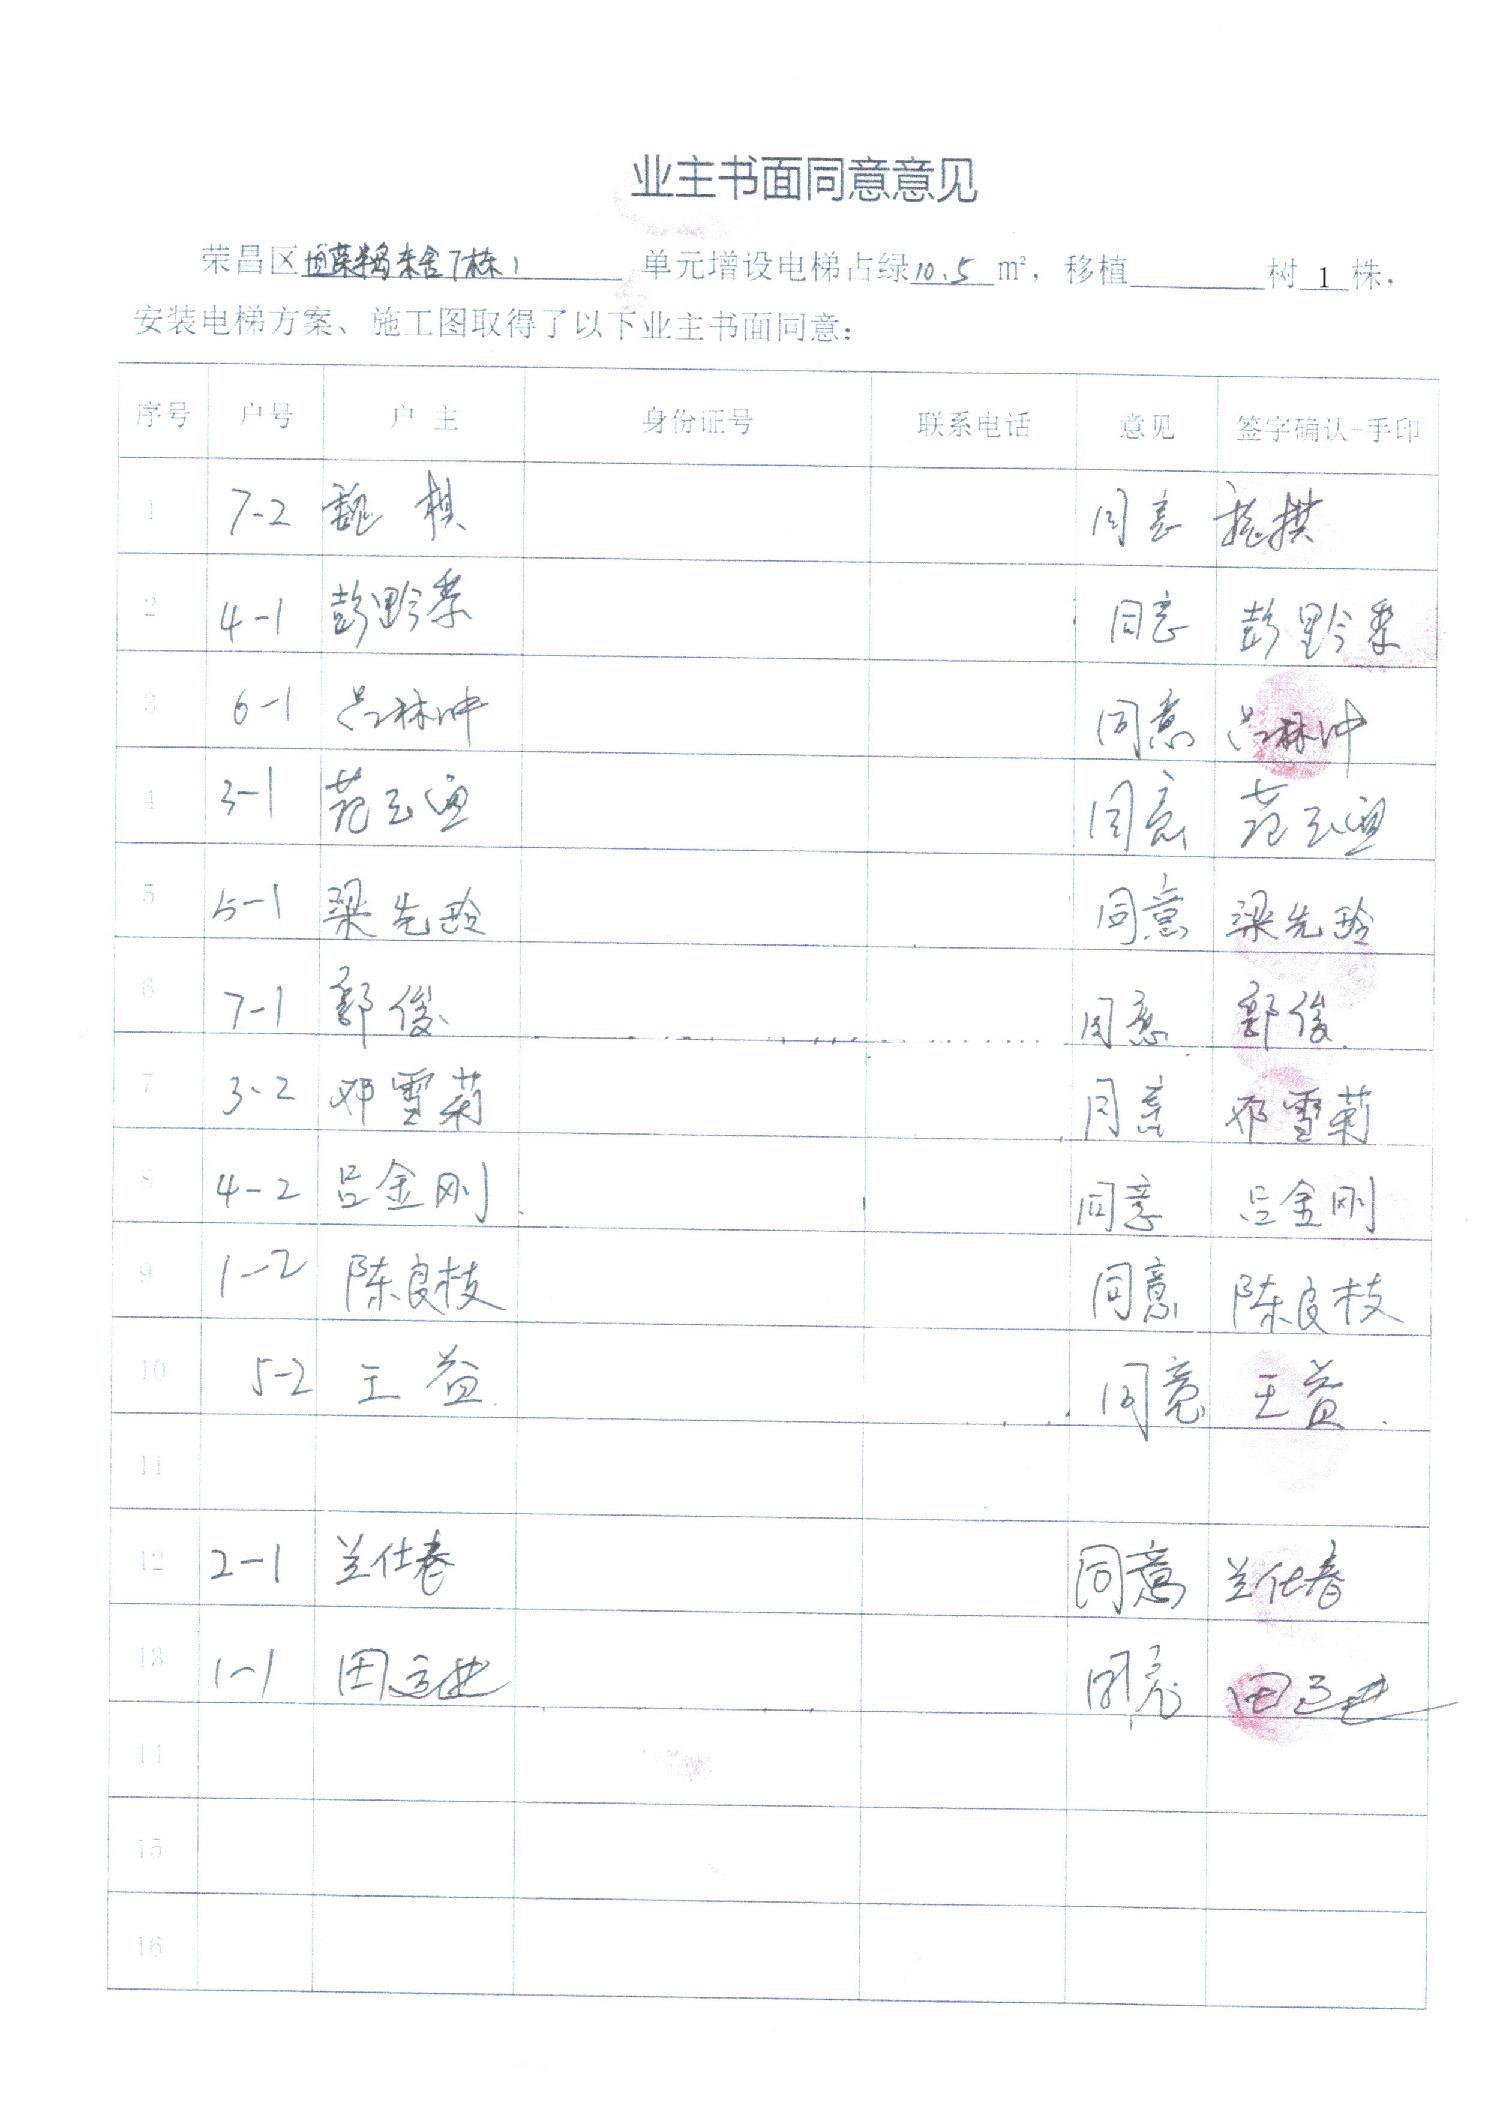 业主书面同意意见
荣昌区 7栋1 单元增设电梯占绿10.5 m²，移植 树 1 株，
安装电梯方案、施工图取得了以下业主书面同意：
序号 户号 户 主 身份证号 联系电话 意见 签字确认-手印
1 7-2 魏 棋 同意
2 4-1 彭黔 同意 彭黔
3 6-1 吕林冲 同意 吕林冲
4 3-1 范玉 同意 范玉
5 5-1 梁先玲 同意 梁先玲
6 7-1 郭俊 同意 郭俊
7 3-2 邓雪莉 同意 邓雪莉
8 4-2 吕金刚 同意 吕金刚
9 1-2 陈良枝 同意 陈良枝
10 5-2 王益 同意 王益
11
12 2-1 兰仕春 同意 兰仕春
13 1-1 田 同意 田
14
15
16